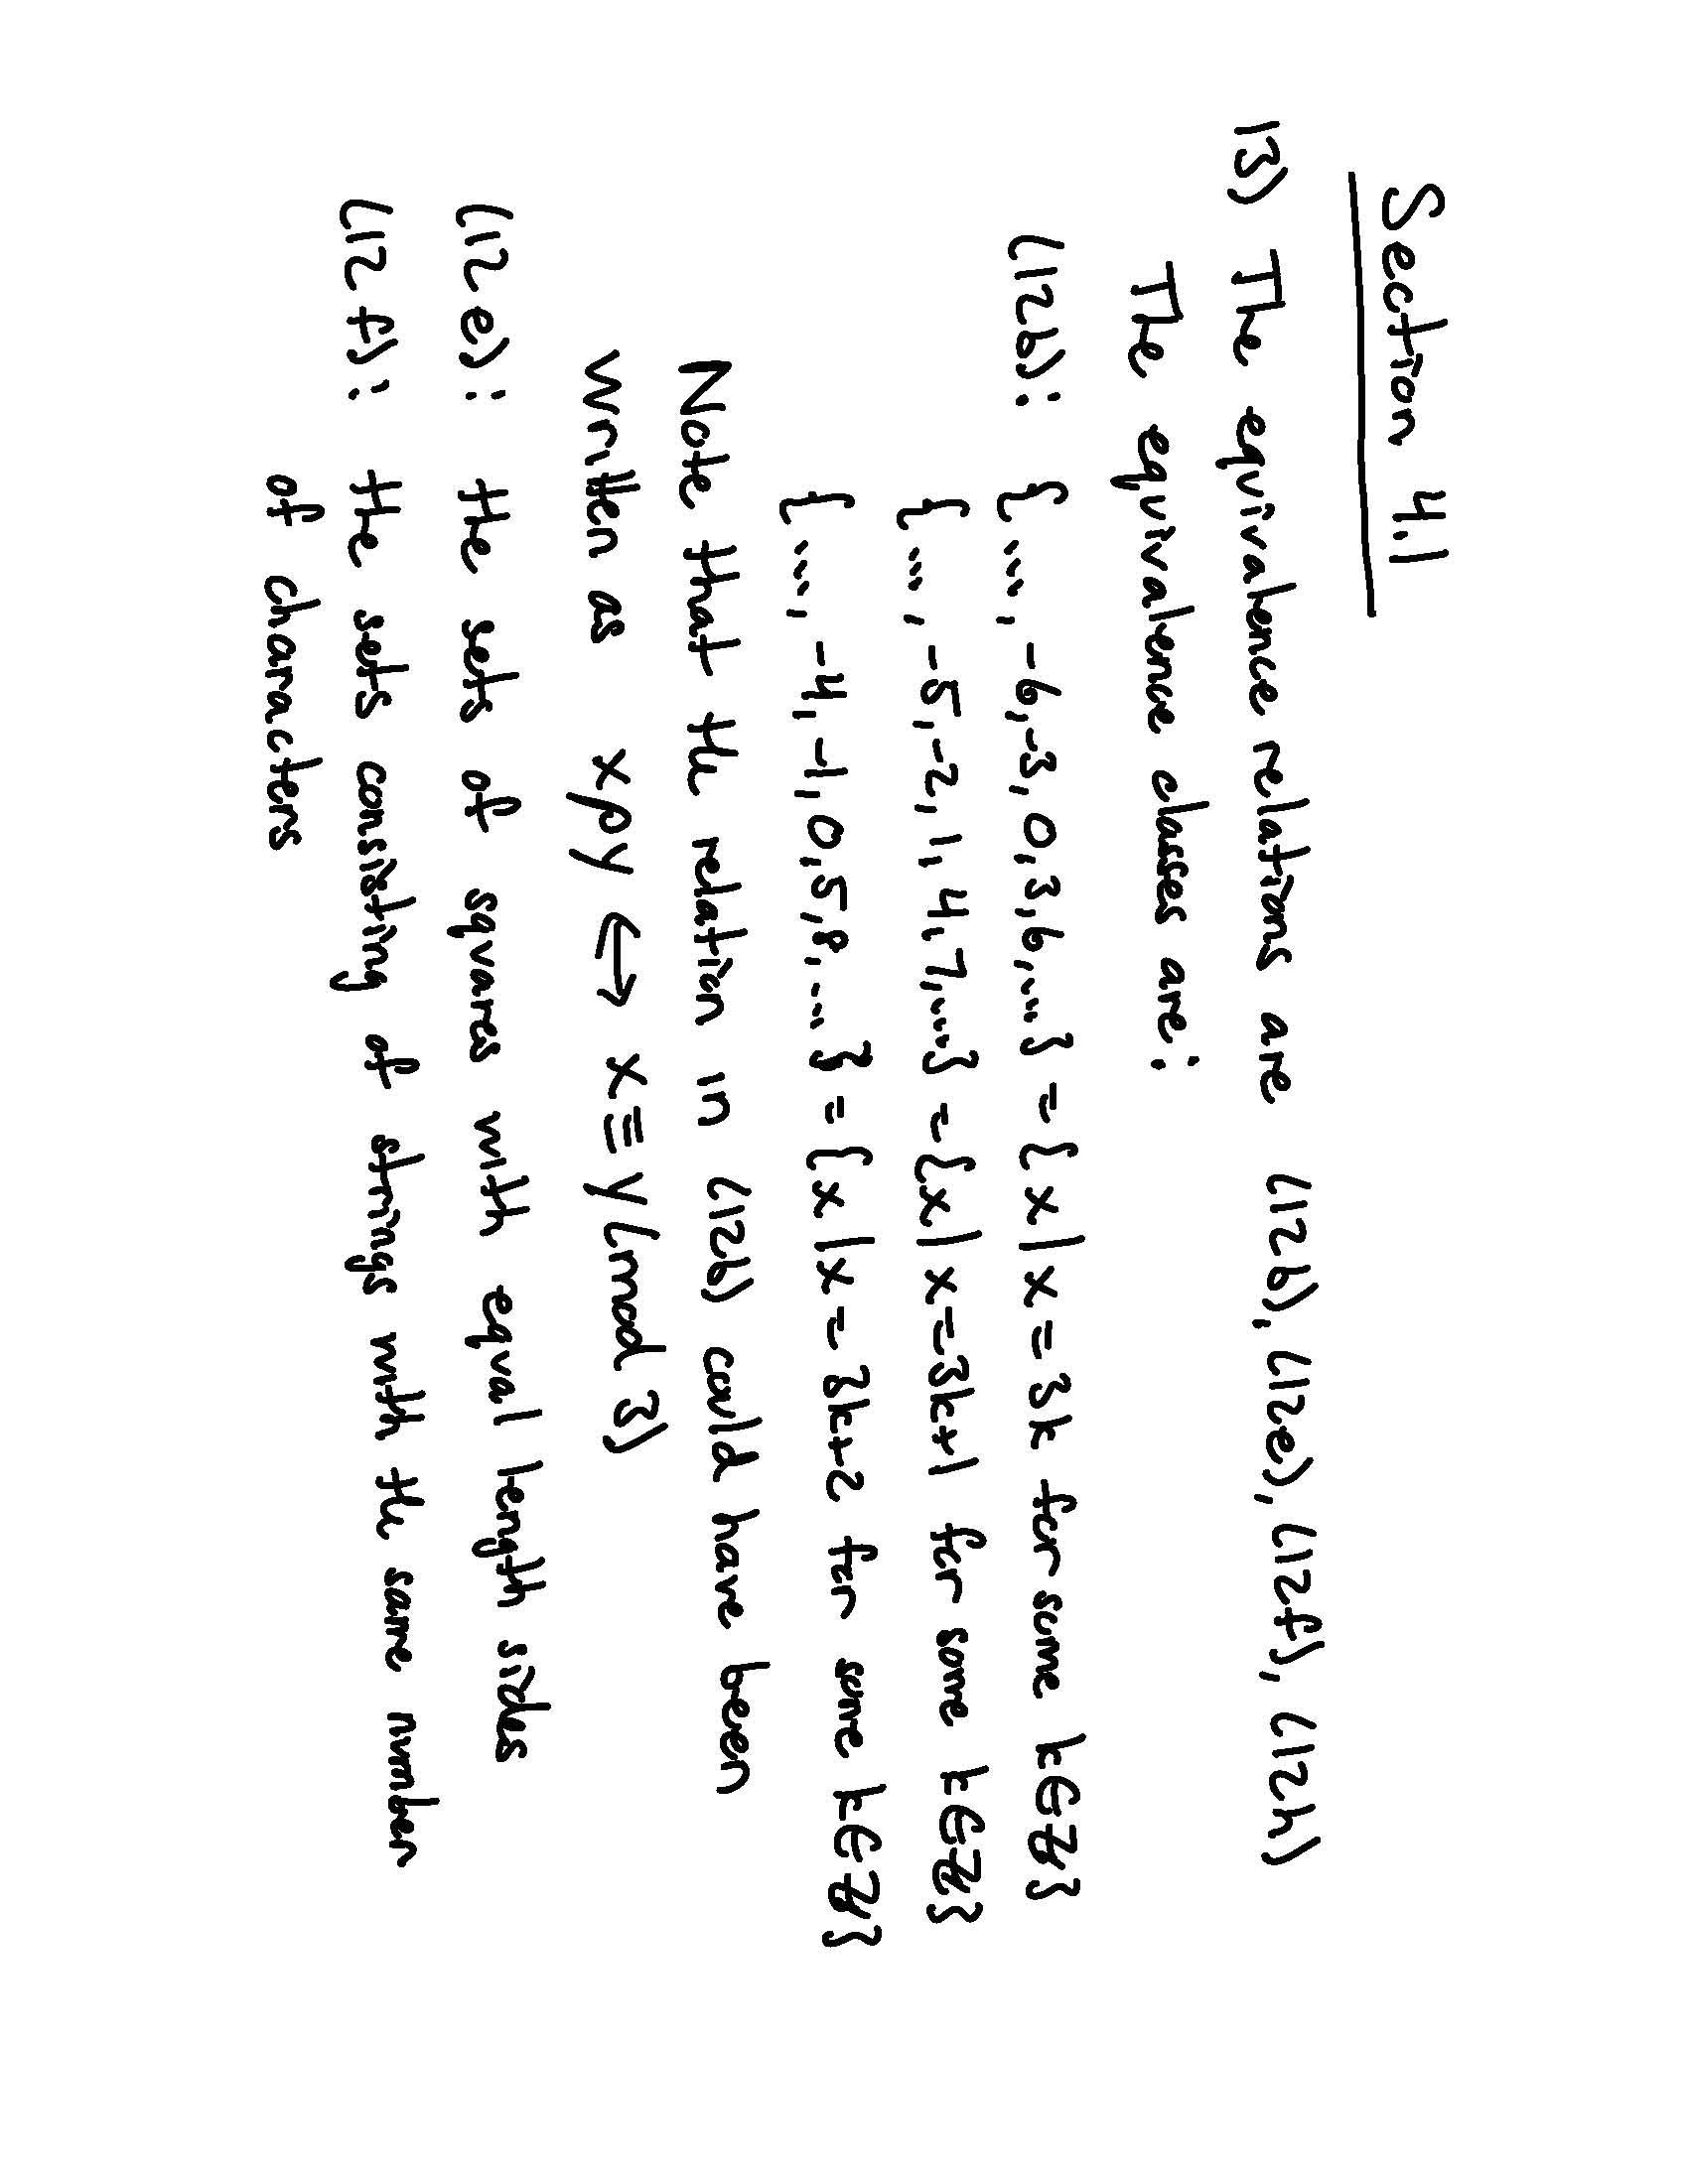 Section 4.1
13) The equivalence relations are (12b), (12e), (12f), (12h)
The equivalence classes are:
(12b): {..., -6, -3, 0, 3, 6, ...} = {x | x = 3k for some k ∈ ℤ}
{..., -5, -2, 1, 4, 7, ...} = {x | x = 3k+1 for some k ∈ ℤ}
{..., -4, -1, 0, 5, 8, ...} = {x | x = 3k+2 for some k ∈ ℤ}
Note that the relation in (12b) could have been
written as xρy ↔ x ≡ y (mod 3)
(12e): the sets of squares with equal length sides
(12f): the sets consisting of strings with the same number
of characters